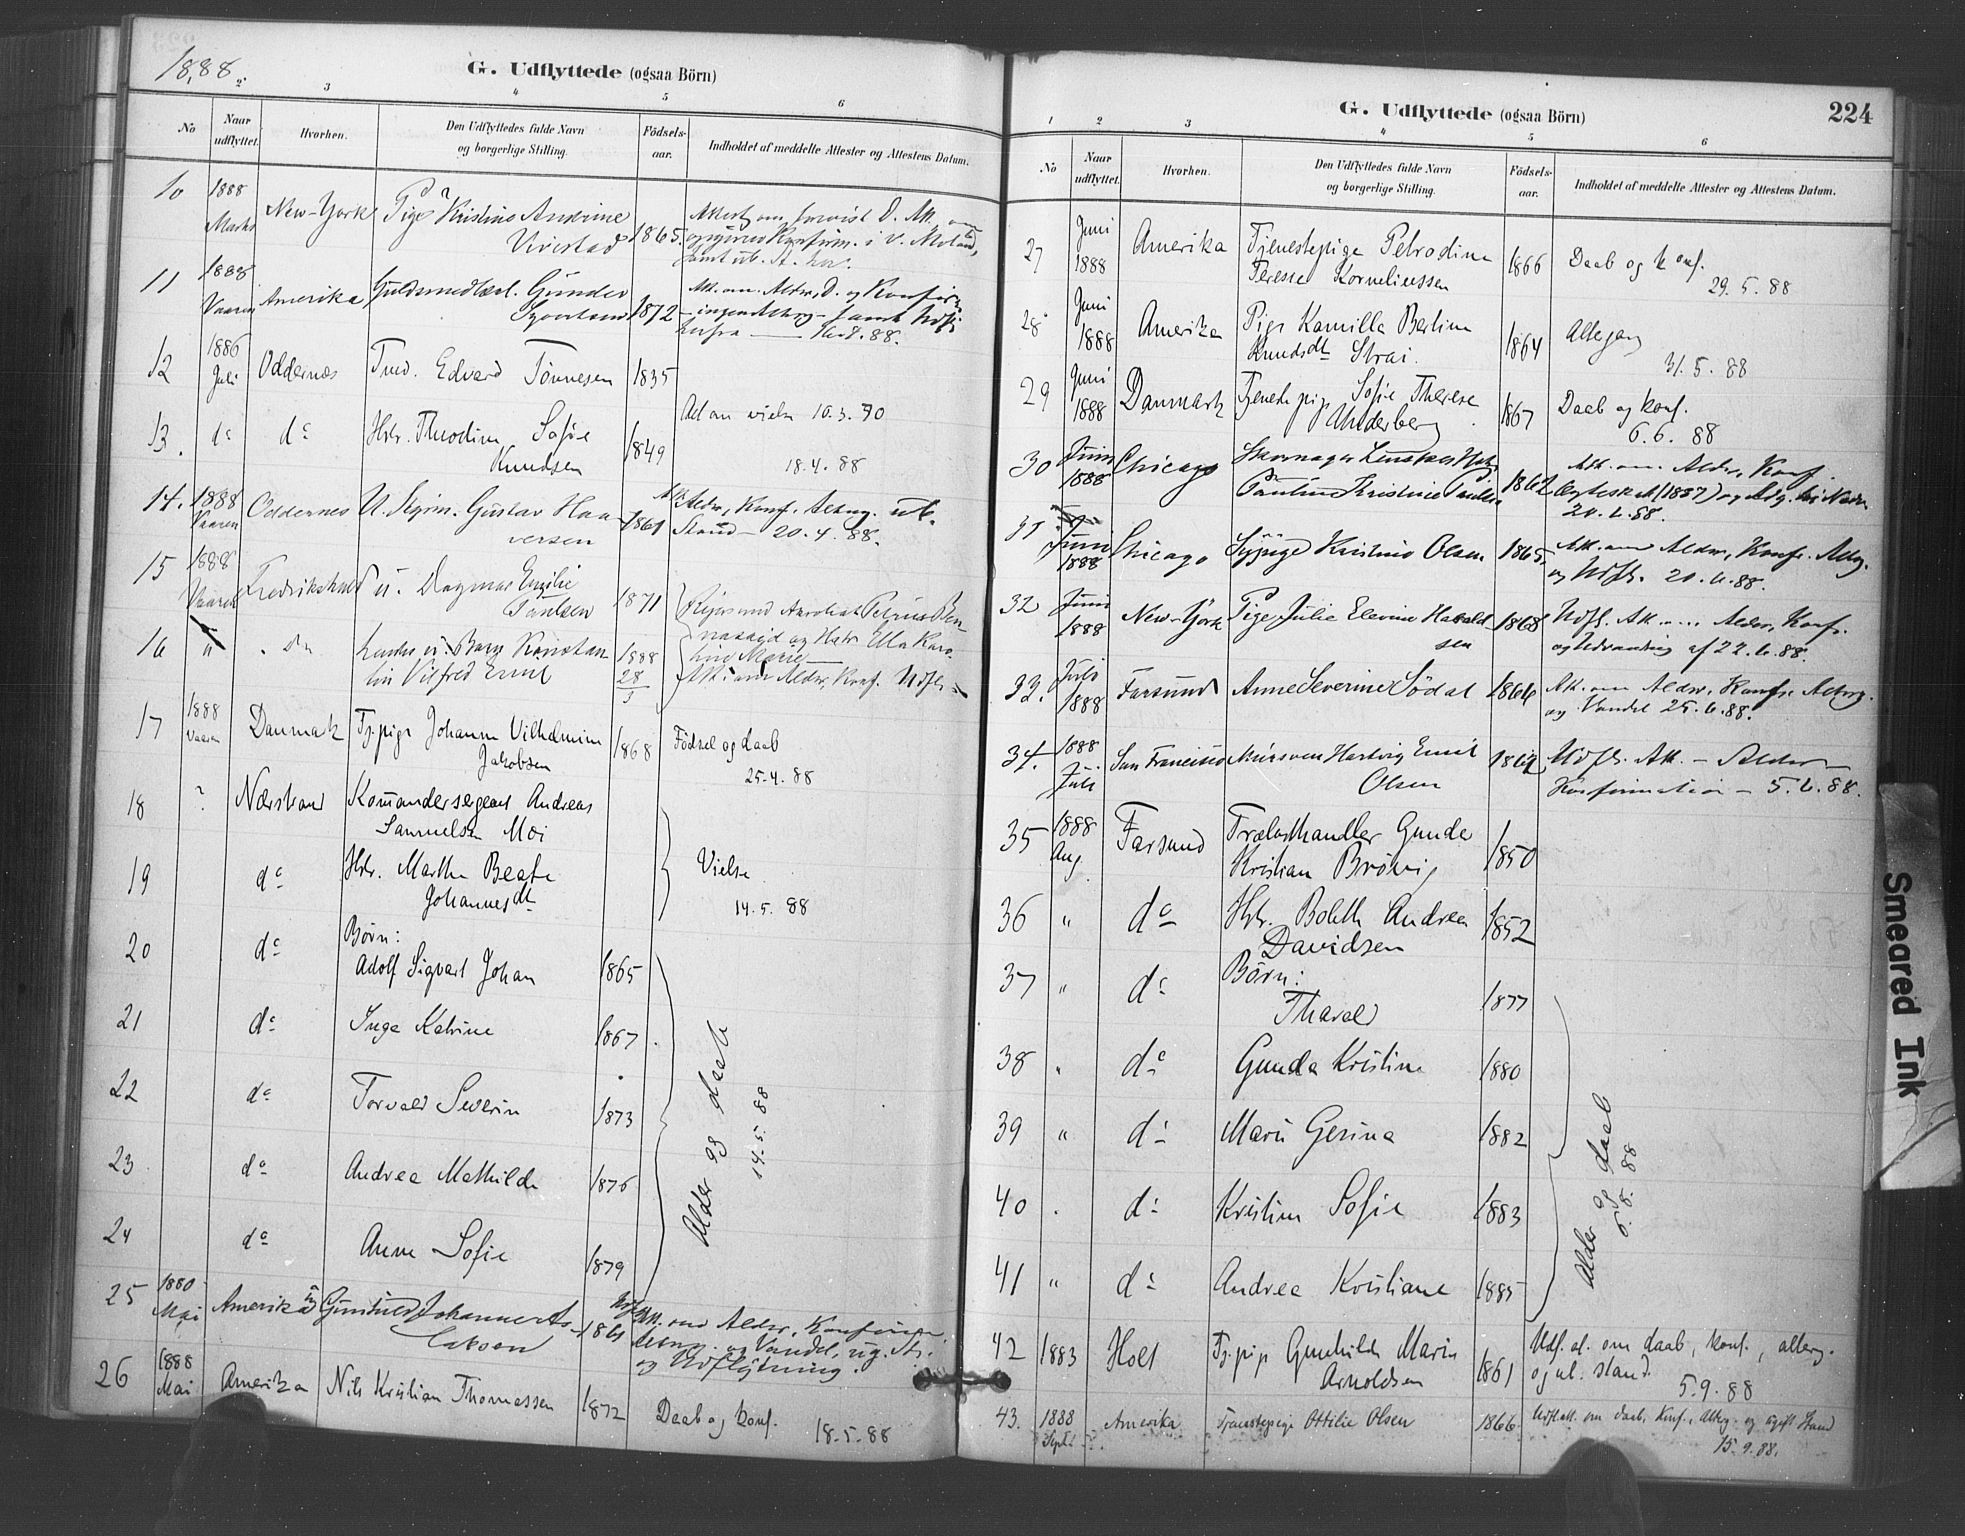 1888.
G. Udflyttede (ogsaa Börn)
2 3 4 5 6
No
Naar udflyttet.
Hvorhen.
Den Udflyttedes fulde Navn og borgerlige Stilling.
Födsels-aar.
Indholdet af meddelte Attester og Attestens Datum.
10 1888 Marts New-York Pige Kristine Andrine 1865
11 1888 Vaaren Amerika Gunder 1872 Att. om Alder, D. og
12 1886 Juli Oddernæs Edvard Tönnesen 1835
Ad an vielse 10.3.70
13. dc dc Hstr. Theodine Sofie Knudsen 1849
18.4.88
14. 1888 Vaaren Oddernes U. Styrm. Gustav Haaversen 1861 Alder, Konf. ub.
Stand - 20.4.88.
15 1888 Vaaren Fredrikshald u. Dagmar Emilie Paulsen 1871
16 " do Barn Konstantin Vilfred Emil 1888 28/3
Att. om Alder, Konf. Udfl.
17 1888 Vaaren Danmark Tj.pige Johanne Vilhelmine Jakobsen 1868 Födsel og daab
25.4.88
18 ? Nærstrand Komandersergeant Andreas Samuelsen Moi
19 dc Hstr. Marthe Beate Johannesdt Vielse
14.5.88
20 dc Börn: Adolf Sigvart Johan 1865
21 dc Inga Katrine 1867
22 dc Torvald Severin 1873
23 dc Andrea Mathilde 1876
24 dc Anne Sofie 1879
Alder og daab
14.5.88
25 1880 Mai Amerika Gunhild Johanne Isaksen 1861 Att. om Alder,
og Vandel,
og Udflytning.
26 1888 Mai Amerika Nils Kristian Thomassen 1872 Daab og konf.
18.5.88
G. Udflyttede (ogsaa Börn)
224
1 2 3 4 5 6
No
Naar udflyttet.
Hvorhen.
Den Udflyttedes fulde Navn og borgerlige Stilling.
Födsels-aar.
Indholdet af meddelte Attester og Attestens Datum.
27 Juni 1888 Amerika Tjenestepige Petrodine Terese Korneliussen 1866 Daab og konf.
29.5.88
28 Juni 1888 Amerika Pige Kamilla Bertine Knudsdt Strai. 1864
31.5.88
29 Juni 1888 Danmark Tjenestepige Sofie Therese Underberg 1867 Daab og konf.
6.6.88
30 Juni 1888 Chicago Pauline Kristine Paulsen 1862 Att. om Alder, Konf.
Ægteskab (1887)
20.6.88.
31 Juni 1888 Chicago Sypige Kristine Olsen 1865 Att. om Alder, Konf.
og Udfl. 20.6.88.
32 Juni 1888 New-York Pige Julie Elevine Haraldsen 1868 Udfl. Att. om Alder, Konf.
og Udvandring af 22.6.88.
33. Juli 1888 Farsund Anne Severine Södal 1866 Att. om Alder, Konf.
og Vandel 25.6.88.
34. 1888 Juli San Francisco Hartvig Emil Olsen Udfl. Att. - Alder
Konfirmation - 5.6.88.
35 1888 Aug. Farsund Trælasthandler Gunder Kristian Brövig 1850
36 " dc Hstr. Boleth Andrea Davidsen 1852
37 " dc Börn: Tharald 1877
38 " dc Gunda Kristine 1880
39 " dc Marie Gesina 1882
40 . dc Kristine Sofie 1883
41 " dc Andrea Kristiane 1885
Alder og daab
6.8.88
42 1883 Holt Tj.pige Gunhild Marie Arnoldsen 1861 Udf. at. om daab, konf., atterg.
og ub. stand.
5.9.88
43. 1888 Septbr. Amerika Tjenestepige Ottilie Olsen 1866 Udfl.att. om daab, konf., Altrg. og ugift Stand
15.9.88.
Smeared Ink